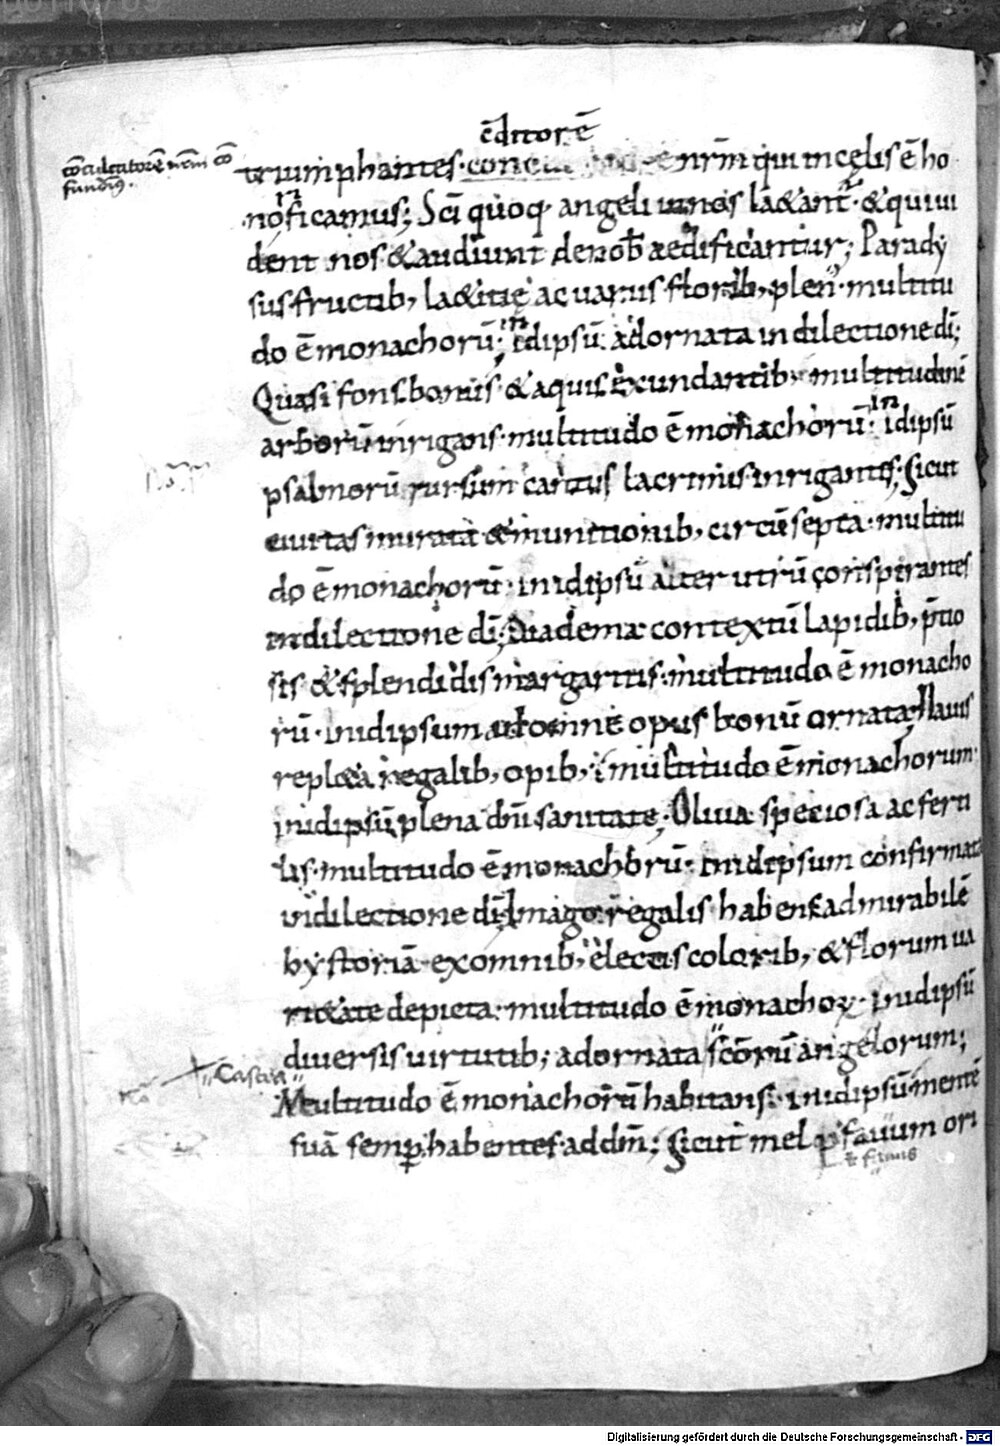 c̄ditorē
cōculcatorē nr̄m cō
fundim᷒.
triumphantes. nr̄m qui in cęlis ē ho
norificamus; Sc̄i quoq; angeli in nos lætant᷒. & qui ui
dent nos & audiunt de nob̄ aedificantur; Parady
sus fructib; lætitię ac uariis florib; plen᷒. multitu
do ē monachorū; in idipsū. adornata in dilectione dī;
Quasi fons bonus. & aquis exundantib; multitudinē
arborū inrigans. multitudo ē monachorū. in idipsū
psalmorū rursum cantus lacrimis inrigantes; Sicut
ciuitas murata & munitionib; circūsepta. multitu
do ē monachorū. in idipsū alter utrū conspirantes
in dilectione dī; Diadema contextū lapidib; p̄tio
sis & splendidis margaritis. multitudo ē monacho
rū. in idipsum ad omne opus bonū ornata; Nauis
repleta regalib; opib; multitudo ē monachorum.
in idipsū plena dn̄i sanitate; Oliua speciosa ac ferti
lis. multitudo ē monachorū. in idipsum confirmata
in dilectione dī; Imago regalis habens admirabilē
hystoriā ex omnib; electis colorib; & florum ua
rietate depicta. multitudo ē monachoꝝ. in idipsū
diuersis uirtutib; adornata sc̄orū angelorum;
Castra
Multitudo ē monachorū habitans. in idipsū. mentē
suā semp̄ habentes. ad dm̄; Sicut mel & fauum ori